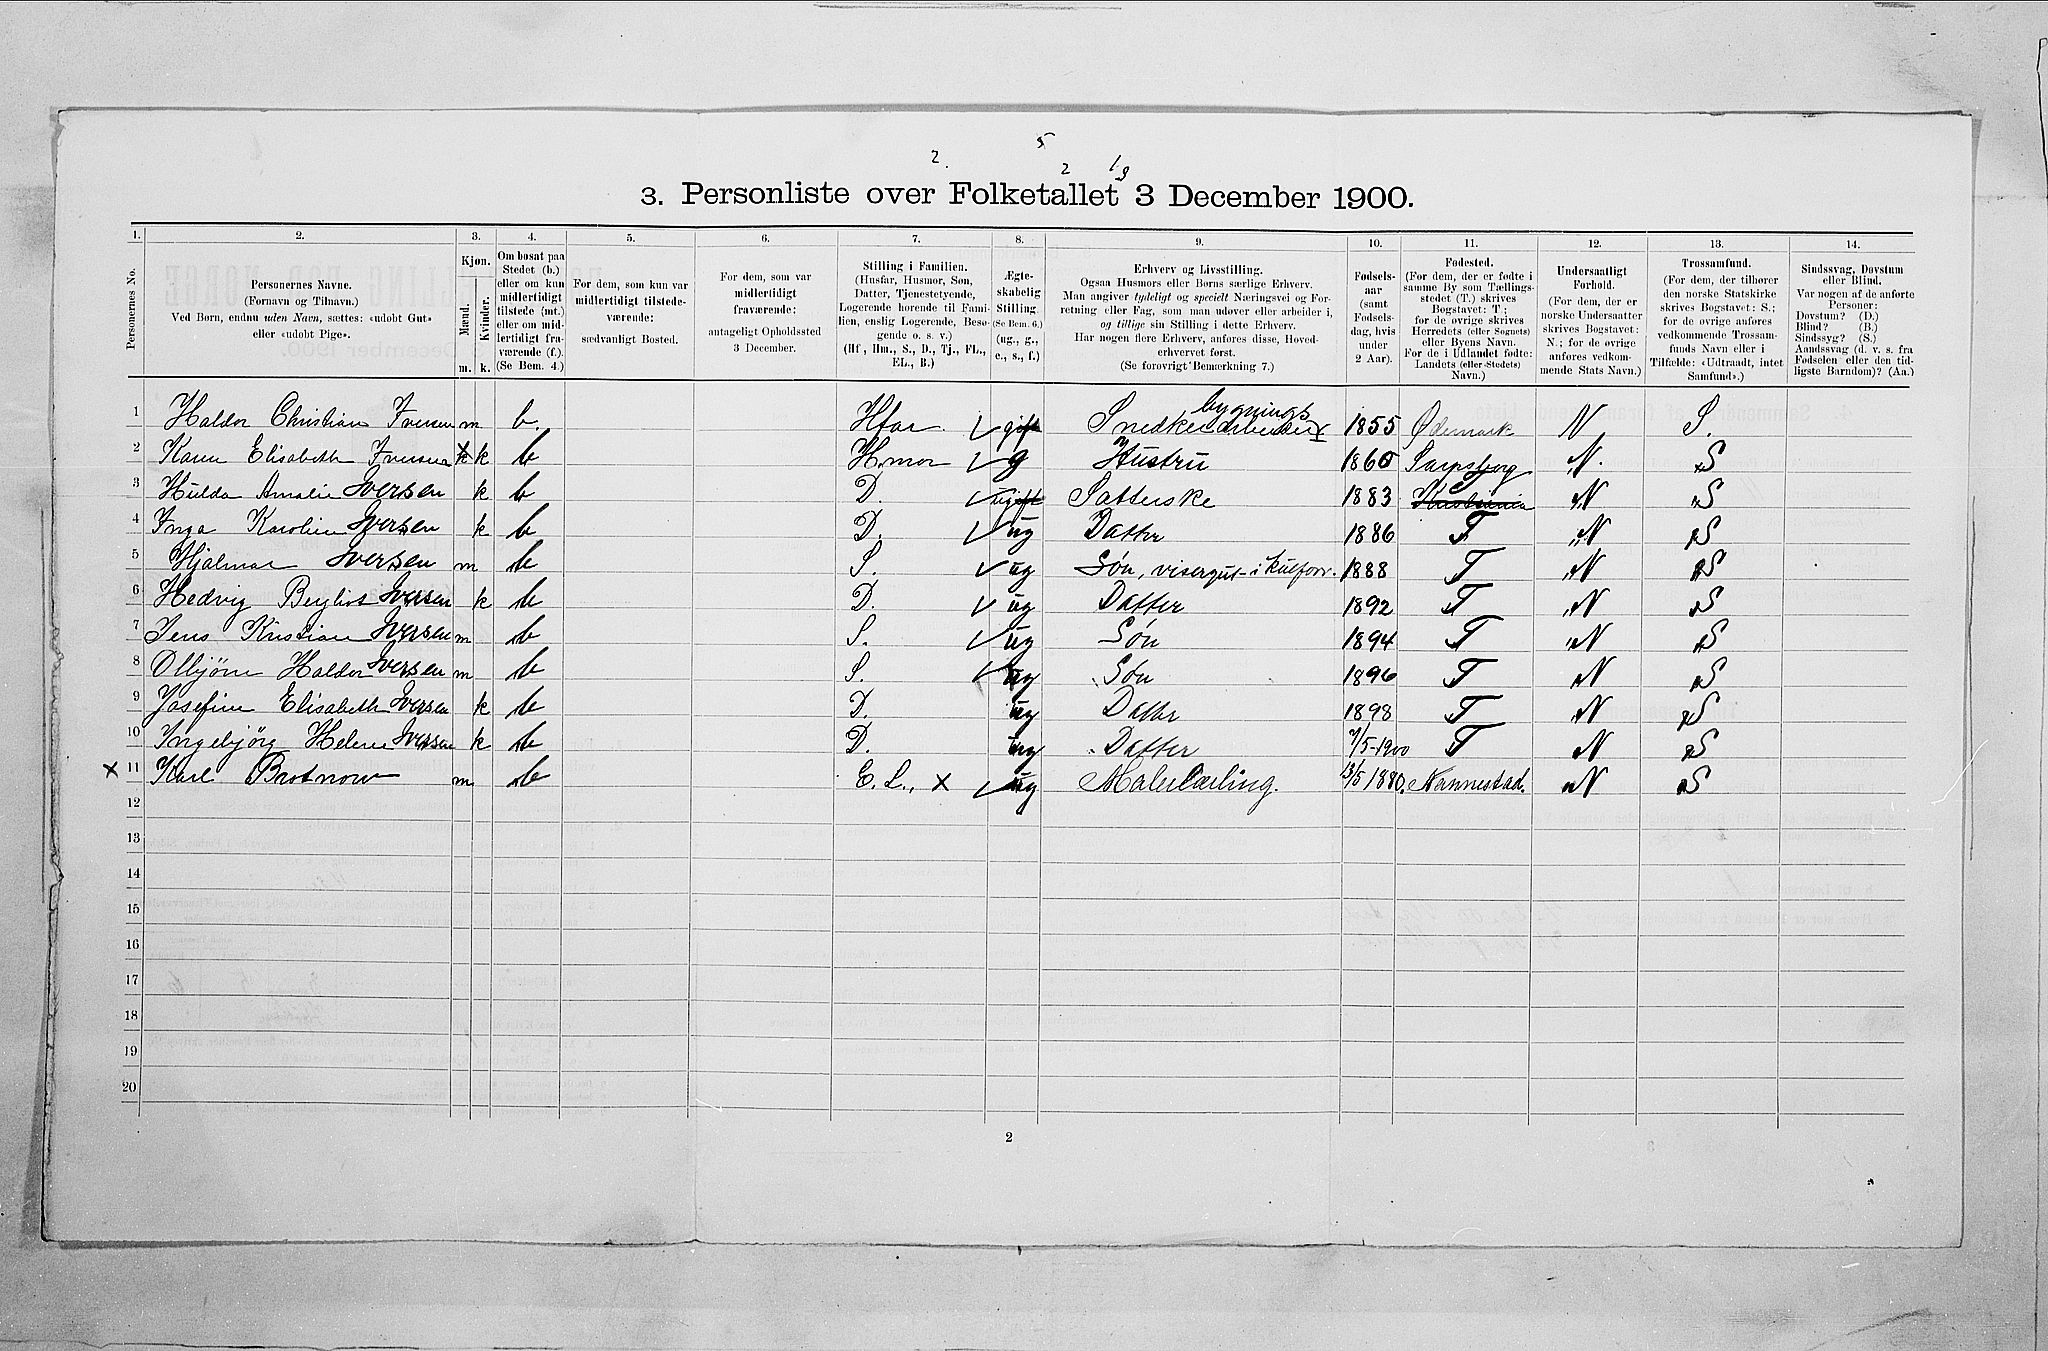 5
2. 2 13
3. Personliste over Folketallet 3 December 1900.
1. 2. 3. 4. 5. 6. 7. 8. 9. 10. 11. 12. 13. 14.
Personernes No.
Personernes Navne.
(Fornavn og Tilnavn.)
Ved Børn, endnu uden Navn, sættes: «udøbt Gut»
eller «udøbt Pige».
Kjøn.
Mænd.
Kvinder.
m. k.
Om bosat paa
Stedet (b.)
eller om kun
midlertidigt
tilstede (mt.)
eller om mid-
lertidigt fra-
værende (f.).
(Se Bem. 4.)
For dem, som kun var
midlertidigt tilstede-
værende:
sædvanligt Bosted.
For dem, som var
midlertidigt
fraværende:
antageligt Opholdssted
3 December.
Stilling i Familien.
(Husfar, Husmor, Søn,
Datter, Tjenestetyende,
Logerende hørende til Fami-
lien, enslig Logerende, Besø-
gende o. s. v.)
(Hf., Hm., S., D., Tj., FL.,
EL., B.)
Ægte-
skabelig
Stilling.
(Se Bem. 6.)
(ug., g.,
e., s., f.)
Erhverv og Livsstilling.
Ogsaa Husmors eller Børns særlige Erhverv.
Man angiver tydeligt og specielt Næringsvei og For-
retning eller Fag, som man udøver eller arbeider i,
og tillige sin Stilling i dette Erhverv.
Har nogen flere Erhverv, anføres disse, Hoved-
erhvervet først.
(Se forøvrigt Bemerkning 7.)
Fødsels-
aar
(samt
Fødsels-
dag, hvis
under
2 Aar).
Fødested.
(For dem, der er fødte i
samme By som Tællings-
stedet (T.) skrives
Bogstavet: T.;
for de øvrige skrives
Herredets (eller Sognets)
eller Byens Navn.
For de i Udlandet fødte:
Landets (eller Stedets)
Navn.)
Undersaatligt
Forhold.
(For dem, der er
norske Undersaatter
skrives Bogstavet:
N.; for de øvrige
anføres vedkom-
mende Stats Navn.)
Trossamfund.
(For dem, der tilhører
den norske Statskirke
skrives Bogstavet: S.;
for de øvrige anføres
vedkommende Trossam-
funds Navn eller i
Tilfælde: «Udtraadt, intet
Samfund».)
Sindssvag, Døvstum
eller Blind.
Var nogen af de anførte
Personer:
Døvstum? (D.)
Blind? (B.)
Sindssyg? (S.)
Aandssvag (d. v. s. fra
Fødselen eller den tid-
ligste Barndom)? (Aa.)
1 Haldor Christian Iversen m b. Hfar gift Snedker bygningsarbeider 1855 Ødemark N S.
2 Karen Elisabeth Iversen k k b H.mor g Hustru 1860 Sarpsborg „N. „S
3 Hulda Amalie Iversen k b D. ugift Satterske 1883 Kristiania „N „S
4 Inga Karoline Iversen k b D. ug Datter 1886 T „N „S
5 Hjalmar Iversen m „b S. ug Søn, visergut i kulforr. 1888 T „N „S
6 Hedvig Bergliot Iversen k „b D. ug Datter 1892 T „N „S
7 Jens Kristian Iversen m „b S. ug Søn 1894 T „N „S
8 Olbjørn Haldor Iversen m „b S. ug Søn 1896 T „N „S
9 Josefine Elisabeth Iversen k „b D. ug Datter 1898 T „N „S
10 Ingebjørg Helene Iversen k „b D. ug Datter 7/5-1900 T „N „S
x 11 Karl Brotnow m „b E. L., x ug Malerlærling. 13/5 1880. Nannestad. „N „S
12
13
14
15
16
17
18
19
20
2